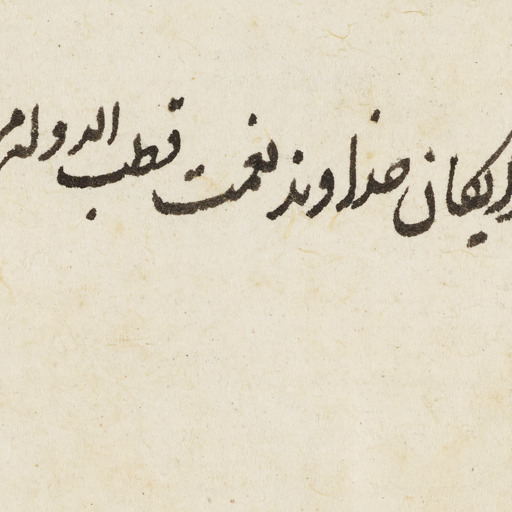 رایکان خداوند نعمت قطب الدوله